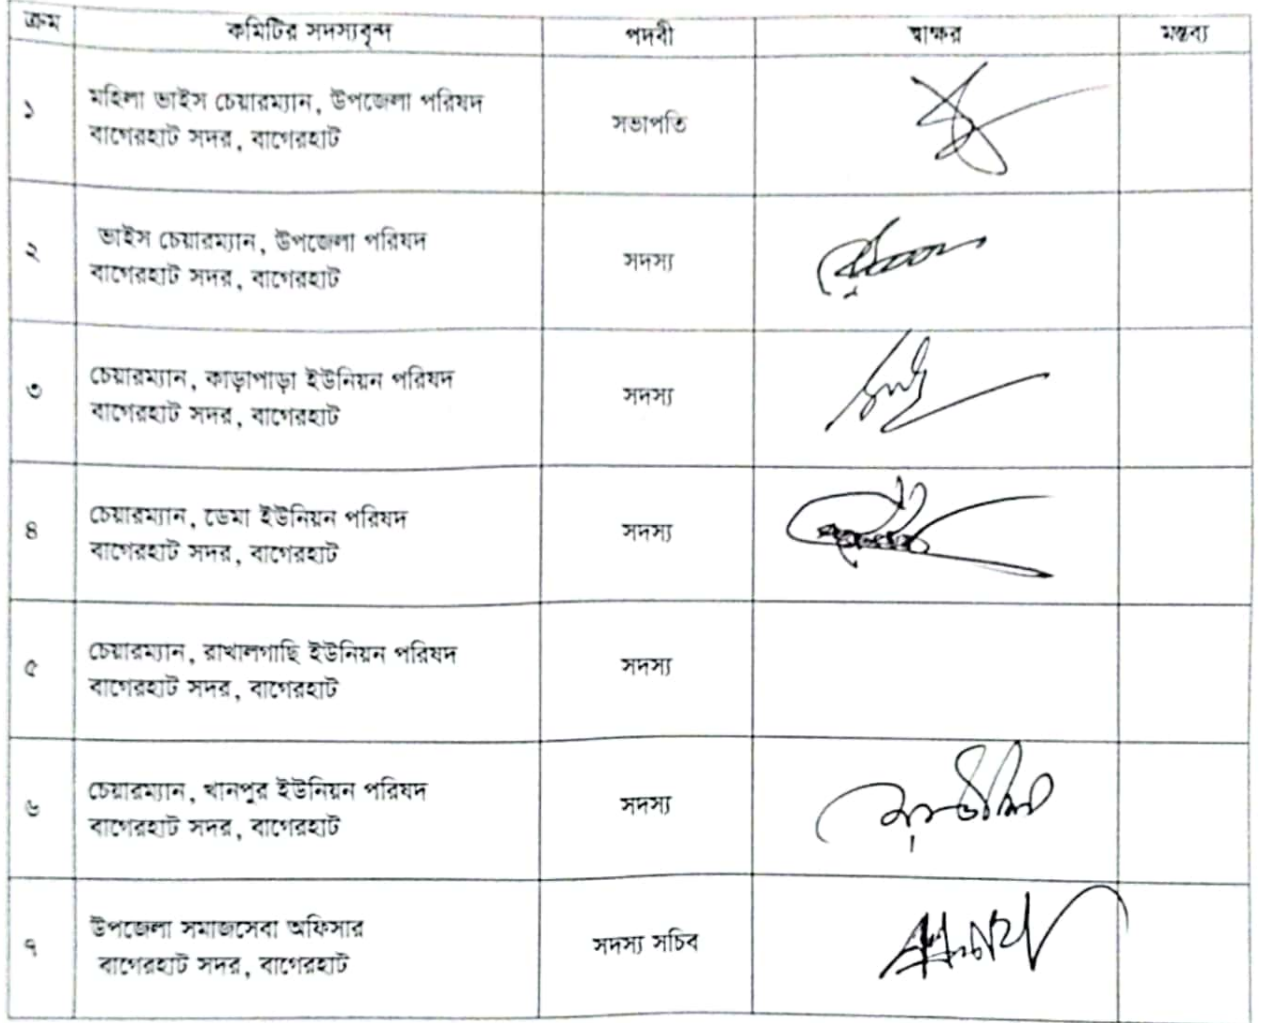 ক্রম কমিটির সদস্যবৃন্দ পদবী স্বাক্ষর মন্তব্য
১ মহিলা ভাইস চেয়ারম্যান, উপজেলা পরিষদ
বাগেরহাট সদর, বাগেরহাট সভাপতি
২ ভাইস চেয়ারম্যান, উপজেলা পরিষদ
বাগেরহাট সদর, বাগেরহাট সদস্য
৩ চেয়ারম্যান, কাড়াপাড়া ইউনিয়ন পরিষদ
বাগেরহাট সদর, বাগেরহাট সদস্য
৪ চেয়ারম্যান, ডেমা ইউনিয়ন পরিষদ
বাগেরহাট সদর, বাগেরহাট সদস্য
৫ চেয়ারম্যান, রাখালগাছি ইউনিয়ন পরিষদ
বাগেরহাট সদর, বাগেরহাট সদস্য
৬ চেয়ারম্যান, খানপুর ইউনিয়ন পরিষদ
বাগেরহাট সদর, বাগেরহাট সদস্য
৭ উপজেলা সমাজসেবা অফিসার
বাগেরহাট সদর, বাগেরহাট সদস্য সচিব